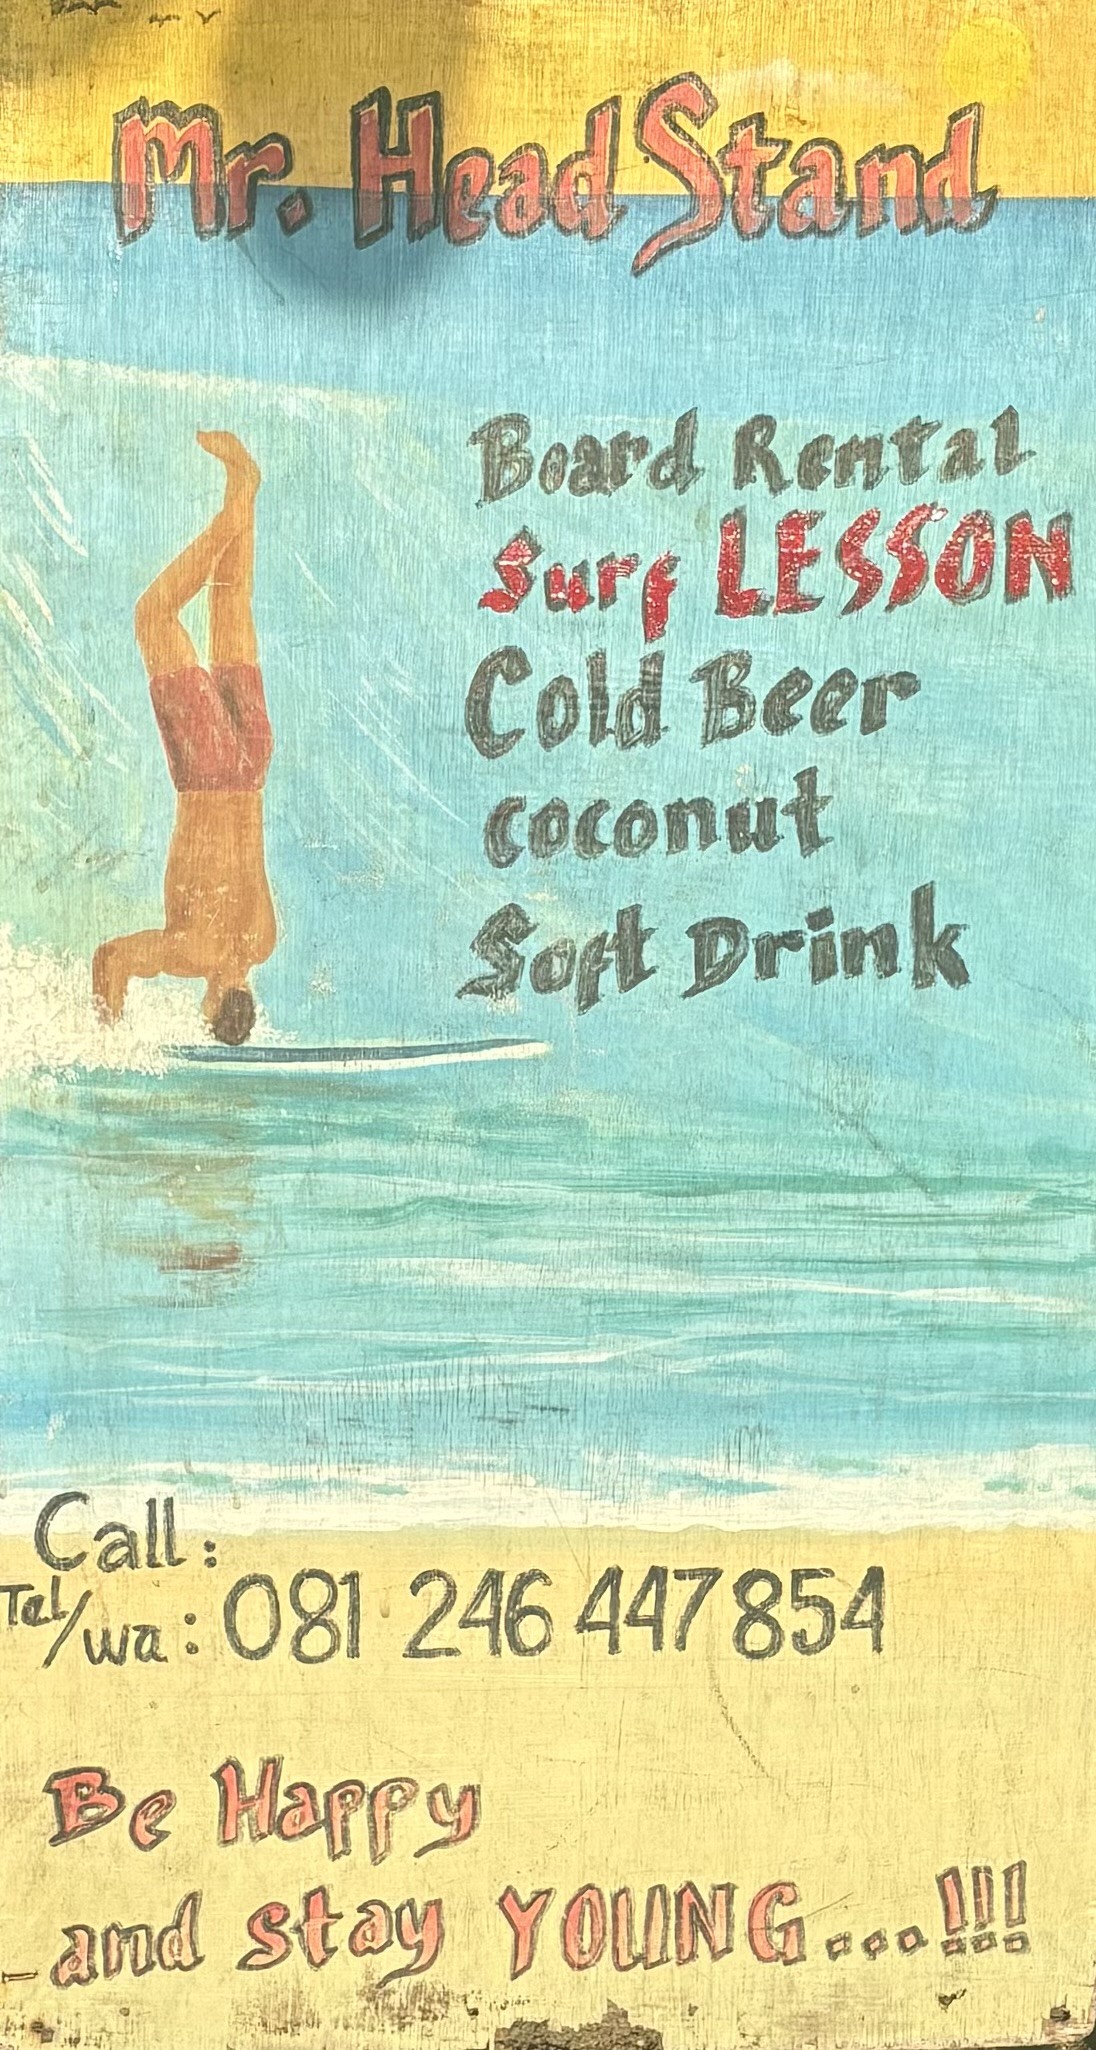 Mr. Head Stand
Board Rental
Surf LESSON
Cold Beer
coconut
Soft Drink
Call :
Tel/wa : 081 246 447 854
Be Happy
and stay YOUNG...!!!